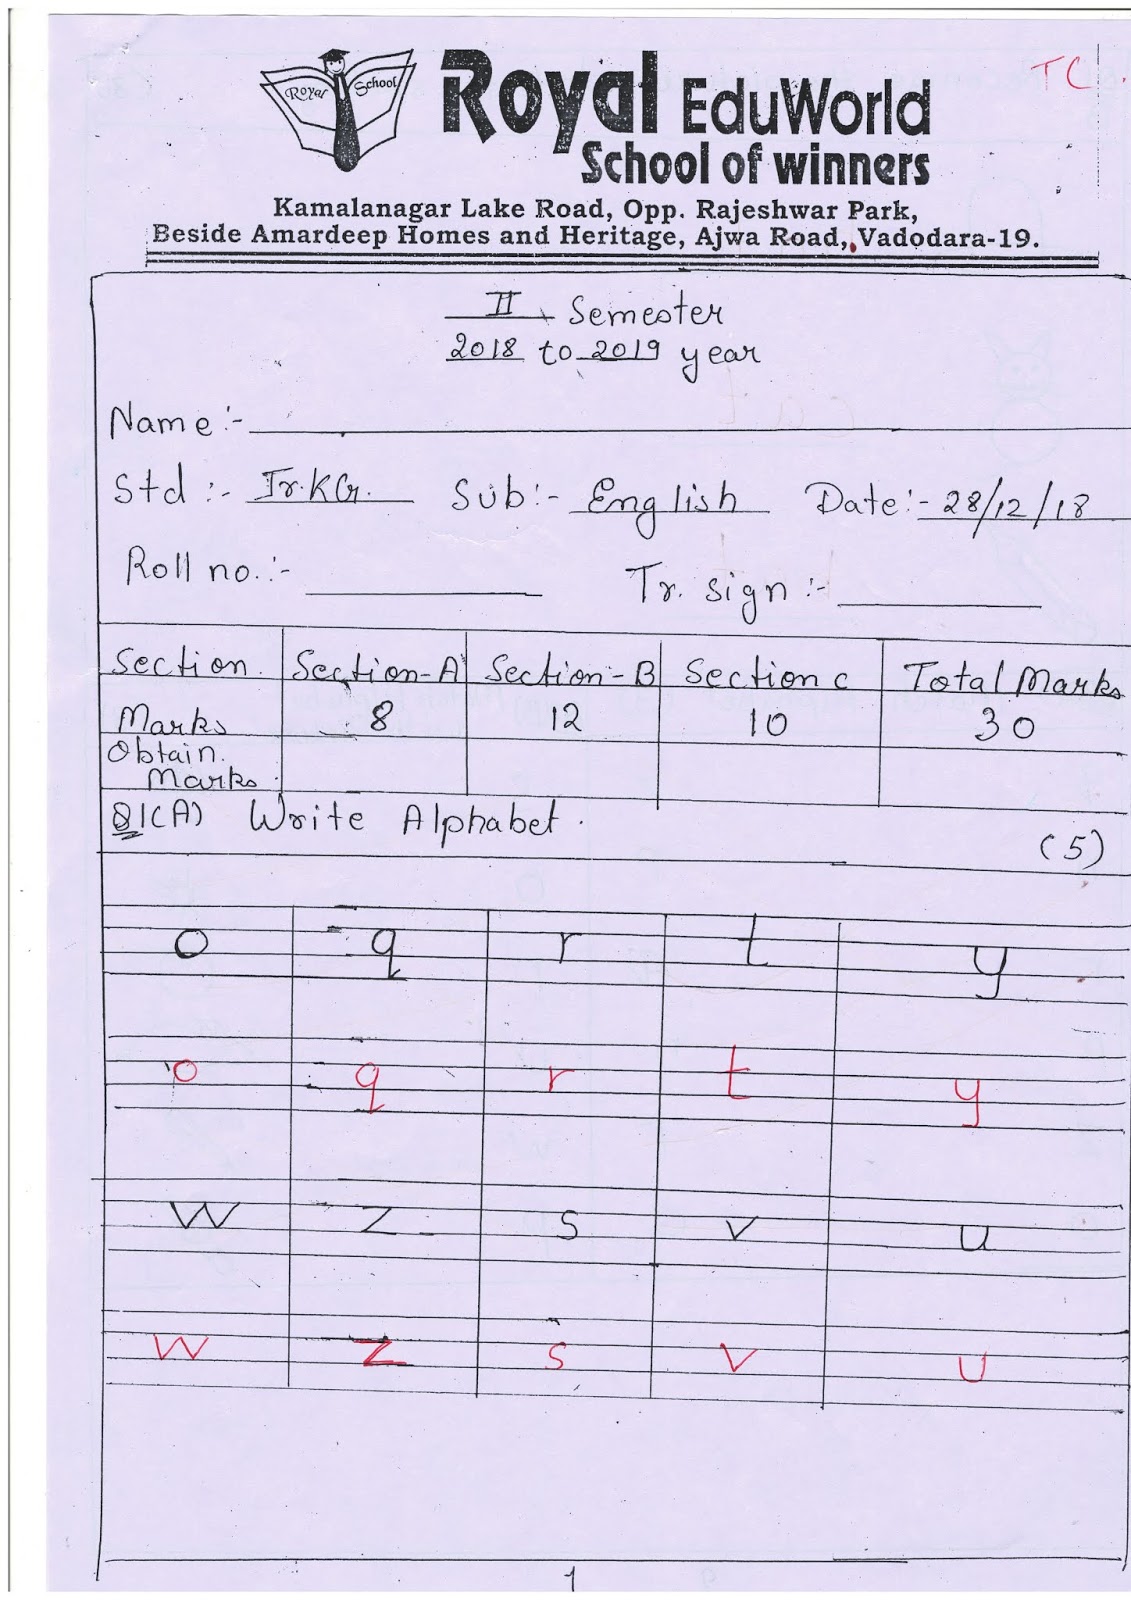 Royal School
Royal EduWorld
TC.
School of winners
Kamalanagar Lake Road, Opp. Rajeshwar Park,
Beside Amardeep Homes and Heritage, Ajwa Road, Vadodara-19.
II Semester
2018 to 2019 year
Name :-
Std :- Jr.KG. Sub :- English Date :- 28/12/18
Roll no. :- Tr. sign :-
Section. Section-A Section-B Section C Total Marks
Marks 8 12 10 30
Obtain.
Marks.
Q1(A) Write Alphabet.
(5)
o q r t y
o q r t y
w z s v u
w z s v u
1